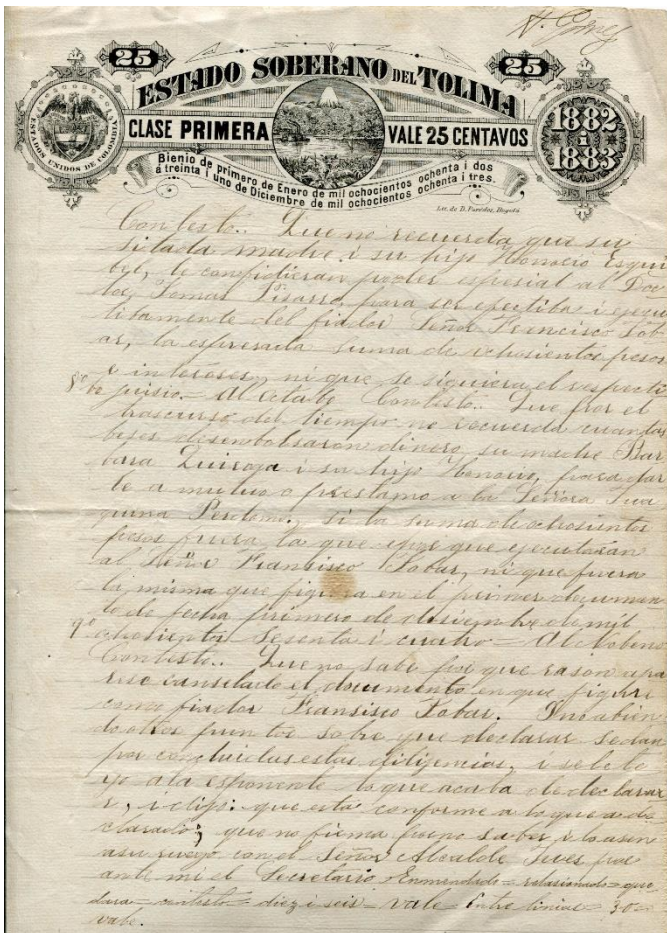 25
25
ESTADO SOBERANO DEL TOLIMA
ESTADOS UNIDOS DE COLOMBIA
CLASE PRIMERA
VALE 25 CENTAVOS
1882 i 1883
Bienio de primero de Enero de mil ochocientos ochenta i dos
á treinta i uno de Diciembre de mil ochocientos ochenta i tres.
Lit. de D. Paredes, Bogotá
Contesto.. Que no recuerda que su
sitada madre i su hijo Honorio Esqui
bel, le confidieran poder espesial al Doc
tor Tomas Pisarro, para ser efectiba i ejecu
tibamente del fiador Señor Francisco Tob
ar, la espresada suma de ochosientos pesos
e intereses, ni que se siguiera el respecti
8º bo juisio. = Al Octabo Contestó.. Que por el
trascurso del tiempo no recuerda cuantas
beses desembolsaron dinero, su madre Bar
bara Quiroga i su hijo Honorio, para dar
le a mutuo o prestamo a la Señora Jua
quina Perdomo, si la suma de ochosientos
pesos fuera la que que ejecutaran
al Señor Fransisco Tobar, ni que fuera
la misma que figura en el primer documen
to de fecha primero de disiembre de mil
9º ochosientos sesenta i cuatro = Al Nobeno
Contesto.. Que no sabe por que rason apa
rese canselado el documento en que figura
como fiador Fransisco Tobar. I no abien
do otros puntos sobre que declarar se dan
por concluidas estas diligencias, i se le le
yo a la esponente lo que acaba de declarar
i dijo: que está conforme a lo que a de
clarado; que no firma por no saber i lo asen
a su ruego con el Señor Alcalde Jues por
ante mi el Secretario Enmendado = relasionado = que
dara = contesto = diez i seis = vale Entre linias = 30 =
vale.